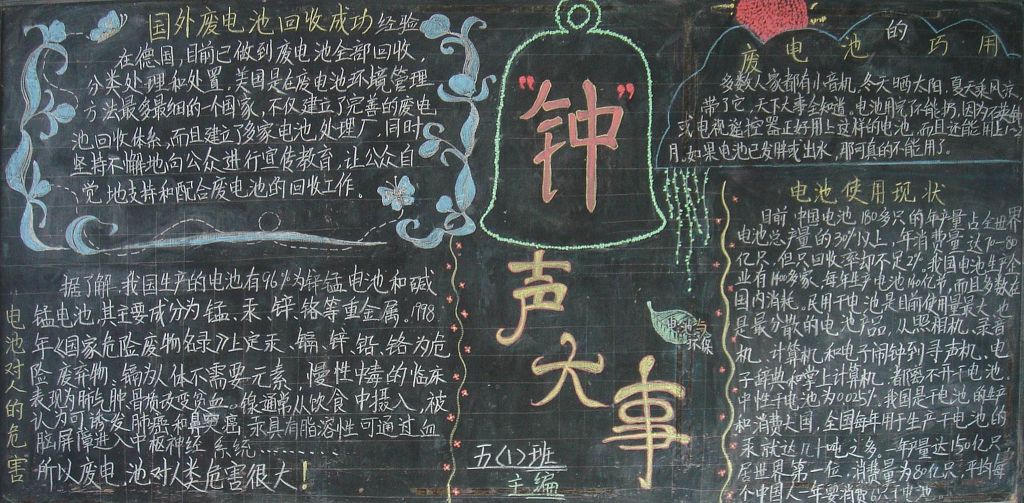 国外废电池回收成功经验
在德国,目前已做到废电池全部回收,
分类处理和处置,美国是在废电池环境管理
方法最多最细的一个国家,不仅建立了完善的废电
池回收体系,而且建立了多家电池处理厂,同时
坚持不懈地向公众进行宣传教育,让公众自
觉地支持和配合废电池的回收工作。
电池对人的危害
据了解,我国生产的电池有96%为锌锰电池和碱
锰电池,其主要成分为锰、汞、锌、铬等重金属。1998
年《国家危险废物名录》上定汞、镉、锌、铅、铬为危
险废弃物、镉为人体不需要元素、慢性中毒的临床
表现为肺气肿骨质改变贫血。镍通常从饮食中摄入,被
认为可诱发肺癌和鼻突癌,汞具有脂溶性可通过血
脑屏障进入中枢神经系统
所以废电池对人类危害很大!
"钟"
声
大
事
五(1)班
主编
废电池的巧用
多数人家都有小音机,冬天晒太阳,夏天乘风凉,
带了它,天下大事全知道。电池用完了不能扔,因为石英钟
或电视遥控器正好用上这样的电池,而且还能用上一个
月,如果电池已发胖或出水,那可真的不能用了。
电池使用现状
目前中国电池180多只的年产量占全世界
电池总产量的30%以上,年消费量达70—80
亿只,但只回收率却不足2%。我国电池生产企
业有1400多家,每年生产电池140亿节,而且多数在
国内消耗。民用干电池是目前使用量最大,也
是最分散的电池产品,从照相机、录音
机、计算机和电子闹钟到寻声机、电
子辞典和掌上计算机,都离不开干电池。
中性干电池为0.025%。我国是干电池的生产
和消费大国,全国每年用于生产干电池的
汞就达几十吨之多,一年产量达150亿只
居世界第一位,消费量为80亿只,平均每
个中国人一年要消费6只干电池